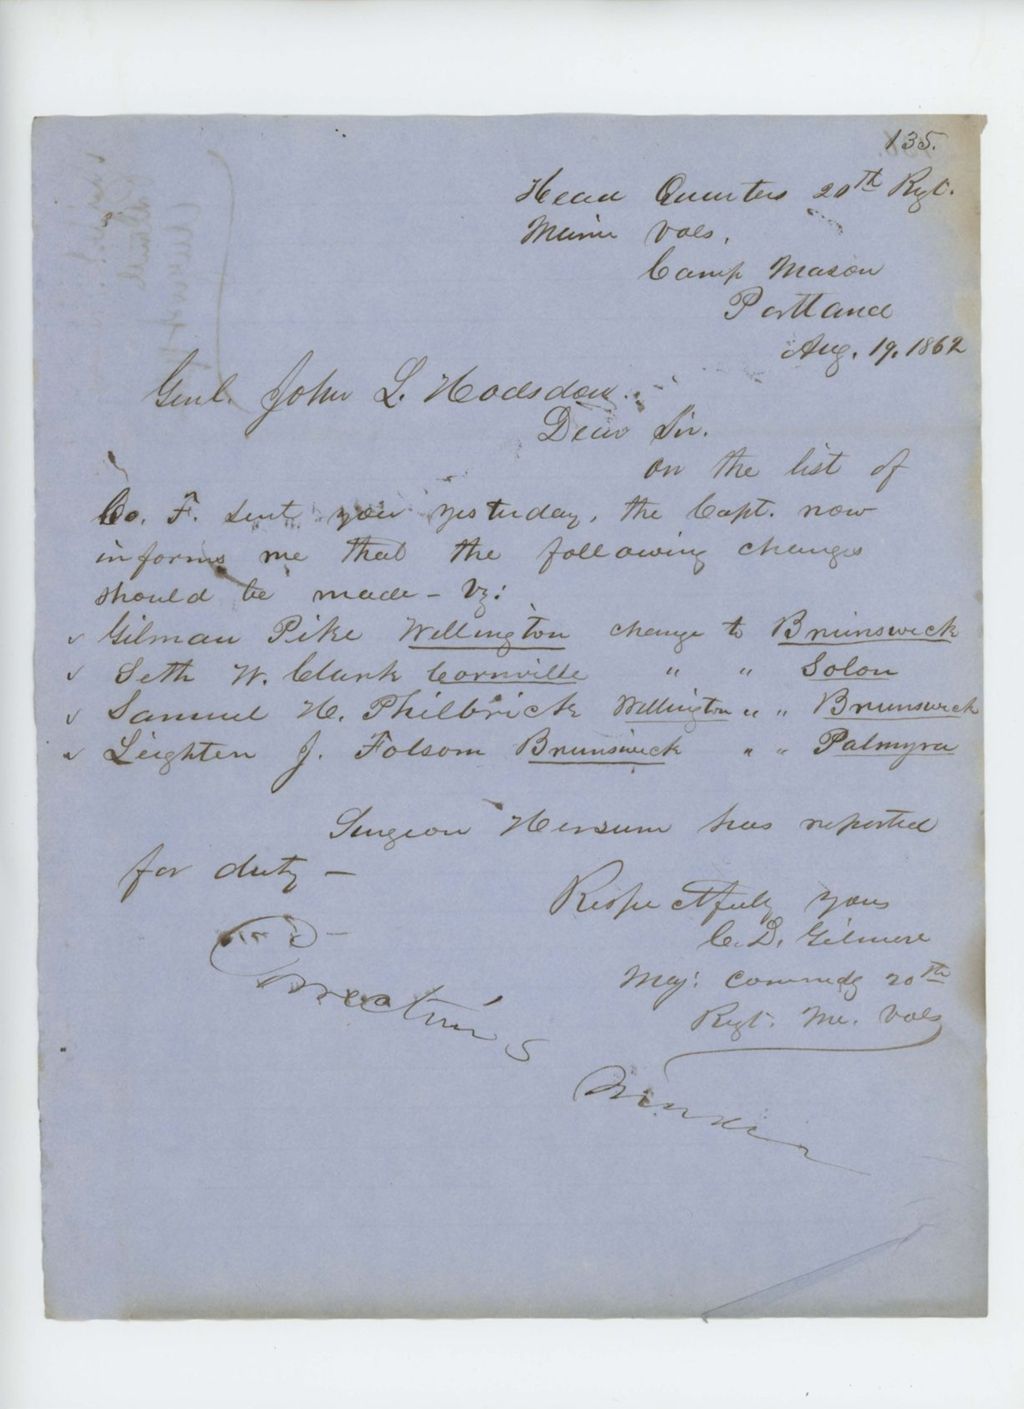 135.
Head Quarters 20th Regt.
Maine Vols.
Camp Mason
Portland
Aug. 19. 1862
Genl. John L. Hodsdon.
Dear Sir.
On the list of
Co. F. sent you yesterday, the Capt. now
informs me that the following changes
should be made - Viz:
✓ Gilman Pike Wellington change to Brunswick
✓ Seth W. Clark Cornville " " Solon
✓ Samuel H. Philbrick Wellington " " Brunswick
✓ Leighten J. Folsom Brunswick " " Palmyra
Surgeon Hersum has reported
for duty -
Respectfully yours
C. D. Gilmore
Maj: Commdg 20th
Regt. Me. Vols
Corrections